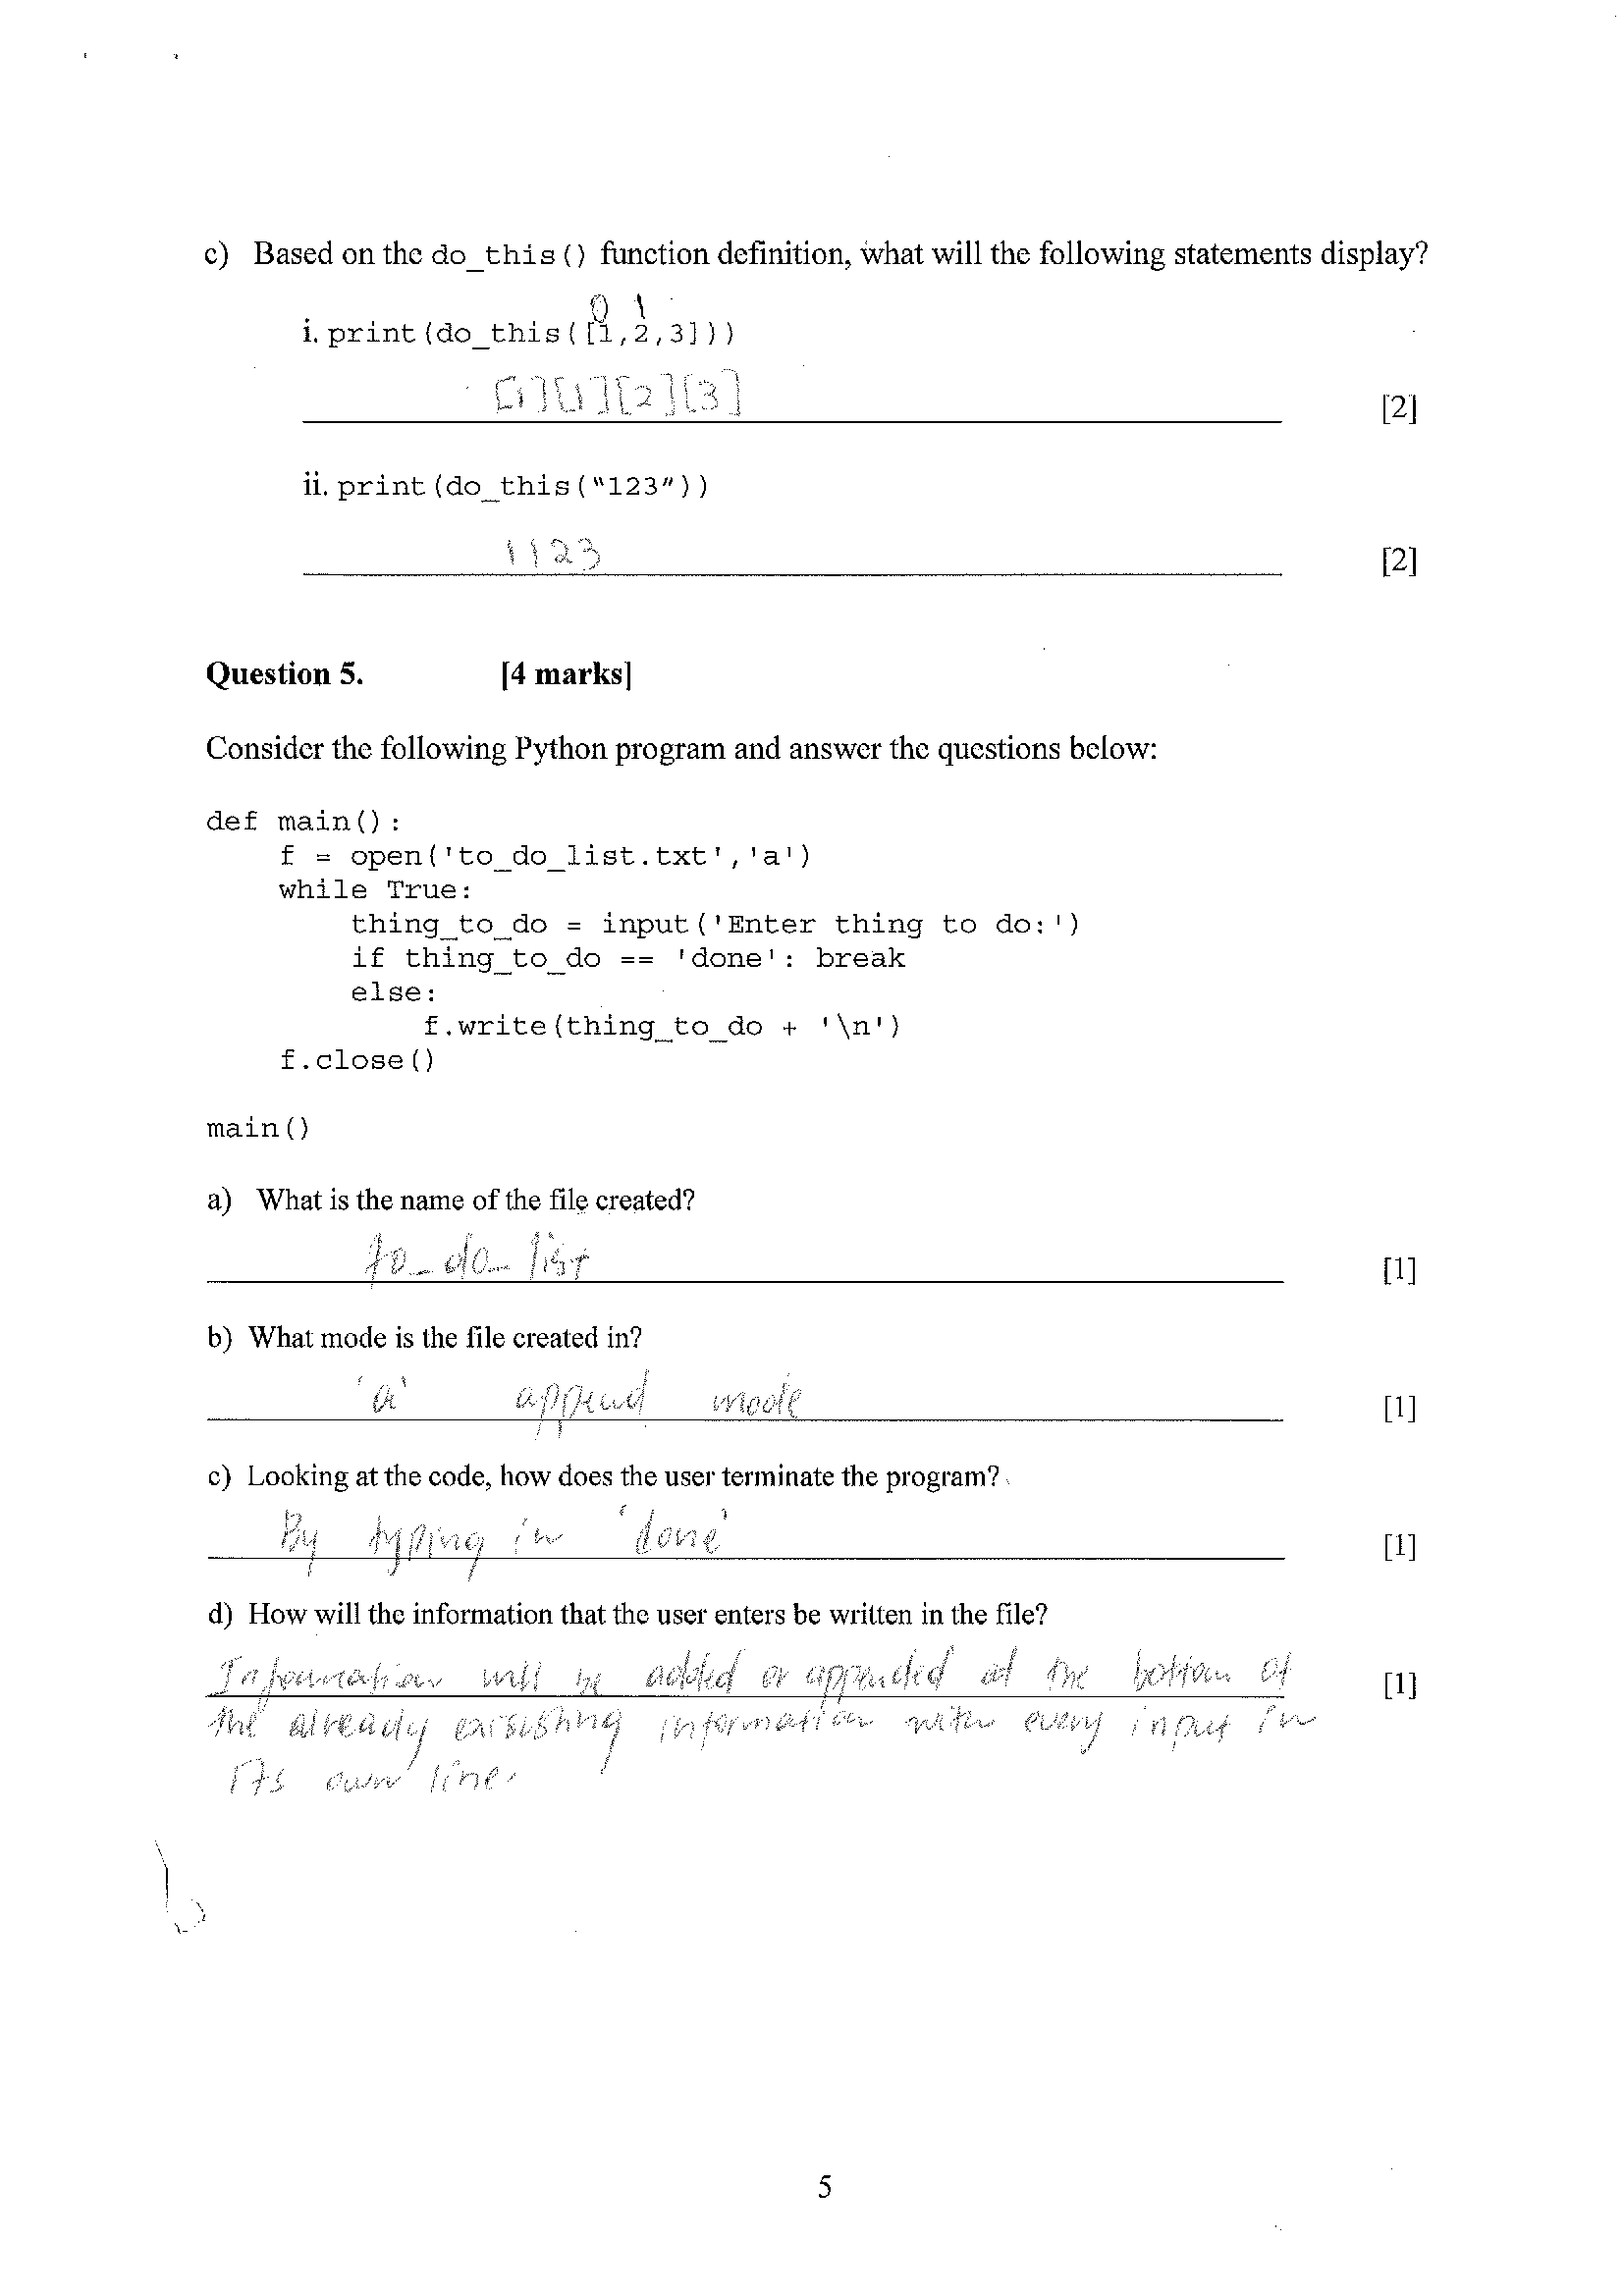 c) Based on the do_this() function definition, what will the following statements display?
0 1
i. print(do_this([1,2,3]))
[1][1][2][3]
[2]
ii. print(do_this("123"))
1123
[2]
Question 5. [4 marks]
Consider the following Python program and answer the questions below:
def main():
    f = open('to_do_list.txt','a')
    while True:
        thing_to_do = input('Enter thing to do:')
        if thing_to_do == 'done': break
        else:
            f.write(thing_to_do + '\n')
    f.close()
main()
a) What is the name of the file created?
to_do_list
[1]
b) What mode is the file created in?
'a' append mode
[1]
c) Looking at the code, how does the user terminate the program?
By typing in 'done'
[1]
d) How will the information that the user enters be written in the file?
Information will be added or appended at the bottom of
[1]
the already exisishing information with every input in
its own line.
5